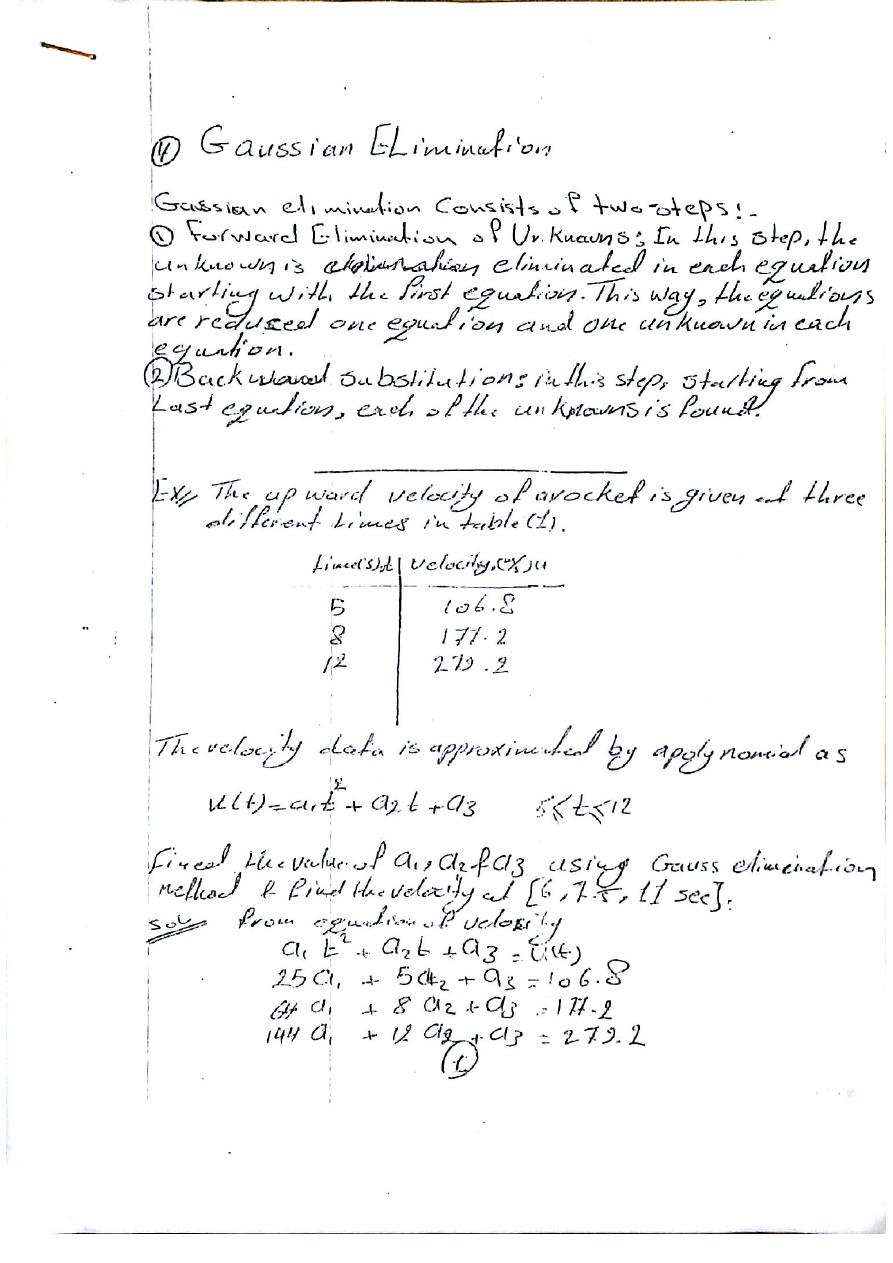 ④ Gaussian Elimination
Gassian elimination Consists of two-steps:-
① Forward Elimination of Unknowns: In this step, the
unknown is eliminated in each equation
starting with the first equation. This way, the equations
are reduced one equation and one unknown in each
equation.
② Backward Substitution: in this step, starting from
Last equation, each of the unknowns is found.
Ex// The upward velocity of a rocket is given at three
different times in table (1).
time(s),t | velocity,(m/s) u
5 106.8
8 177.2
12 279.2
The velocity data is approximated by a polynomial as
u(t)=a₁t²+a₂t+a₃ 5≤t≤12
Find the value of a₁, a₂ & a₃ using Gauss elimination
method & find the velocity at [6, 7.5, 11 sec].
sol/ from equation of velosity
a₁t²+a₂t+a₃=u(t)
25a₁ + 5a₂ + a₃ = 106.8
64a₁ + 8a₂ + a₃ = 177.2
144a₁ + 12a₂ + a₃ = 279.2
①